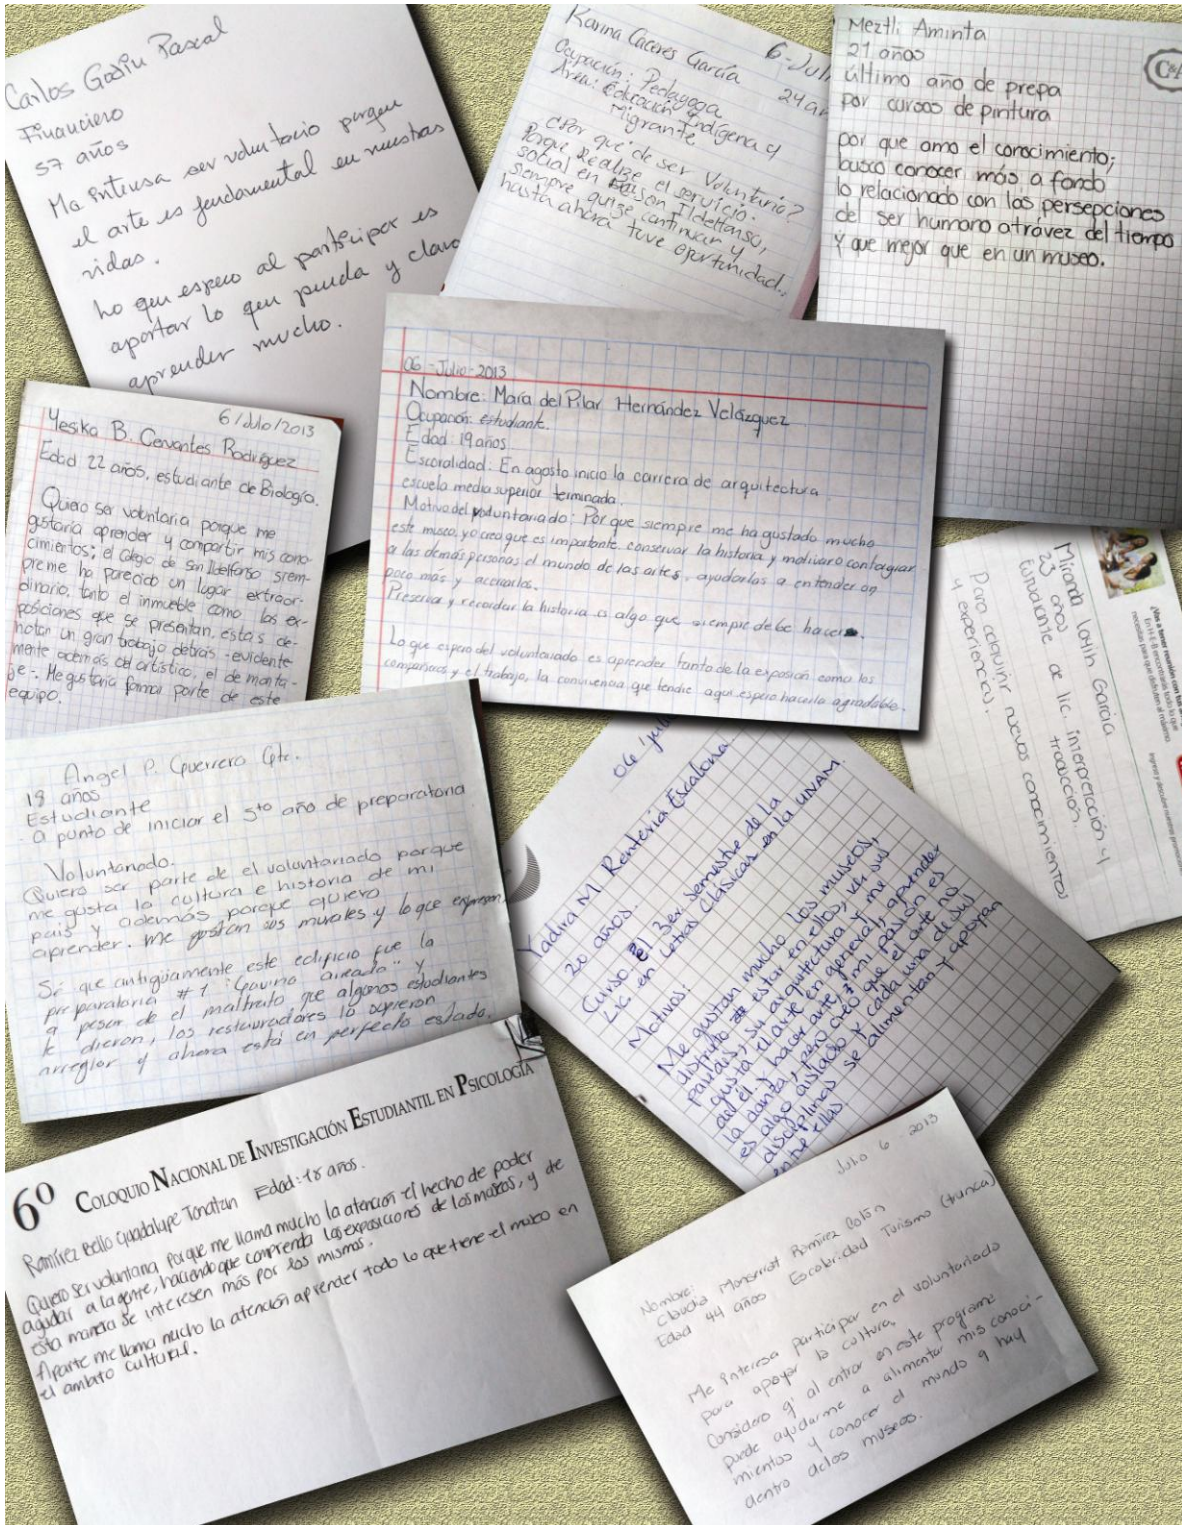 Carlos Pascal
Financiero
57 años
Me interesa ser voluntario porque
el arte es fundamental en nuestras
vidas.
Lo que espero al participar es
aportar lo que pueda y claro
aprender mucho.
Karina Caceres García
6-Juli
Ocupación: Pedagoga
24 añ
Área: Educación Indígena y
Migrante
¿Por qué de ser Voluntario?
Porque Realize el servicio
social en San Ildelfonso,
siempre quize continuar y
hasta ahora tuve oportunidad.
Meztli Aminta
21 años
último año de prepa
por cursos de pintura
por que amo el conocimiento;
busco conocer más a fondo
lo relacionado con las persepciones
del ser humano atravez del tiempo
y que mejor que en un museo.
C&A
6/Julio/2013
Yesika B. Cervantes Rodríguez
Edad 22 años, estudiante de Biología.
Quiero ser voluntaria porque me
gustaría aprender y compartir mis cono-
cimientos; el colegio de San Ildelfonso siem-
pre me ha parecido un lugar extraor-
dinario, tanto el inmueble como las ex-
posiciones que se presentan, estas de-
notan un gran trabajo detrás -evidente
mente además del artístico, el de monta-
je-. Me gustaría formar parte de este
equipo.
06-Julio-2013
Nombre: María del Pilar Hernández Velázquez
Ocupación: estudiante.
Edad: 19 años
Escoralidad: En agosto inicio la carrera de arquitectura
escuela media superior terminada.
Motivo del voluntariado: Por que siempre me ha gustado mucho
este museo, yo creo que es importante conservar la historia y motivar o contagiar
a las demás personas el mundo de las artes, ayudarlas a entender un
poco más y acercarlas.
Preservar y recordar la historia es algo que siempre debe hacerse.
Lo que espero del voluntariado es aprender tanto de la exposición como los
compañeros y el trabajo, la convivencia que tendre aqui espero hacerla agradable.
Miranda García
23 años
Estudiante de lic. interpretación y
traducción.
Para adquirir nuevos conocimientos
y experiencias.
Angel P. Guerrero Gtz.
18 años
Estudiante
a punto de iniciar el 5to año de preparatoria
Voluntariado.
Quiero ser parte de el voluntariado porque
me gusta la cultura e historia de mi
pais y además porque quiero
aprender. Me gustan sus murales y lo que expresan
Sé que antigüamente este edificio fue la
preparatoria #1 "Gavino" y
a pesar de el maltrato que algunos estudiantes
le dieron, los restauradores lo supieron
arreglar y ahora está en perfecto estado.
06/juli
Yadira M Rentería Escalona
20 años.
Curso el 3er. semestre de la
Lic. en Letras Clásicas en la UNAM.
Motivos:
Me gustan mucho los museos,
disfruto estar en ellos, ver sus
paredes, su arquitectura y me
gusta el arte en general, aprender
del él y hacer arte, mi pasión es
la danza, pero creo que el arte no
es algo aislado y cada una de sus
disciplinas se alimentan y apoyan
entre ellas
6º COLOQUIO NACIONAL DE INVESTIGACIÓN ESTUDIANTIL EN PSICOLOGÍA
Ramírez Bello Guadalupe Tonatzin Edad: 18 años.
Quiero ser voluntaria porque me llama mucho la atención el hecho de poder
ayudar a la gente, haciendo que comprenda las exposiciones de los museos, y de
esta manera se interesen más por los mismos.
Aparte me llama mucho la atención aprender todo lo que tiene el museo en
el ambito cultural.
Julio 6. 2013
Nombre:
Claudia Monserrat Ramírez Colón
Edad 44 años Escolaridad Turismo (trunca)
Me interesa participar en el voluntariado
para apoyar la cultura.
Considero q' al entrar en este programa
puede ayudarme a alimentar mis conoci-
mientos y conocer el mundo q hay
dentro delos museos.